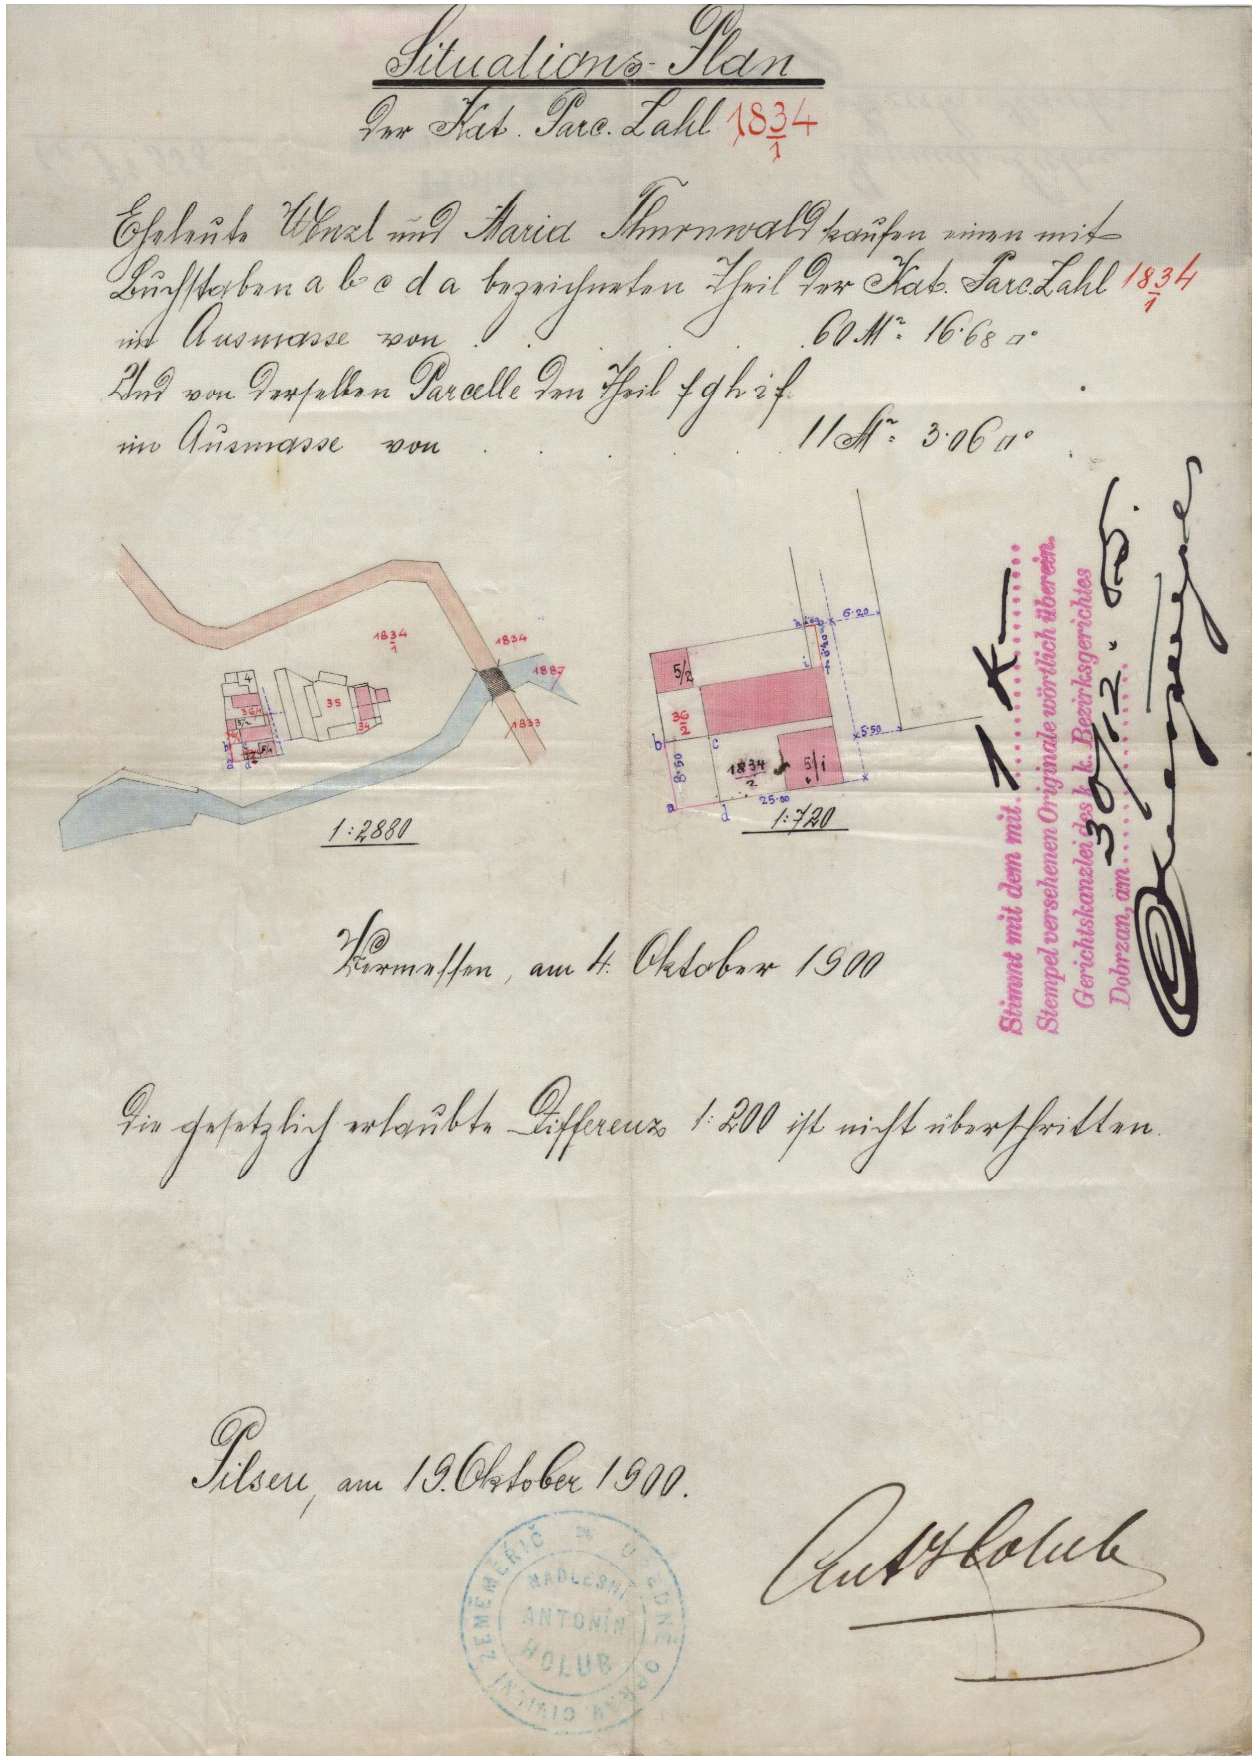 Situations-Plan
der Kat. Parc. Zahl 1834/1
Eheleute Wenzl und Maria Thurnwald kaufen einen mit
Buchstaben a b c d a bezeichneten Theil der Kat. Parc. Zahl 1834/1
im Ausmasse von . . . 60 M² = 16·68 □°
Und von derselben Parcelle den Theil f g h i f
im Ausmasse von . . . 11 M² = 3·06 □°
1834/1
1834
1887
1833
4
35
34
1:2880
5/2
36/2
1834/2
5/1
6·20
5·50
8·50
25·00
a
b
c
d
h
i
f
1:720
Stimmt mit dem mit 1 K
Stempel versehenen Originale wörtlich überein.
Gerichtskanzlei des k. k. Bezirksgerichtes
Dobrzan, am 30/12
Vermessen, am 4. Oktober 1900
Die gesetzlich erlaubte Differenz 1:200 ist nicht überschritten.
Pilsen, am 19. Oktober 1900.
Ant Holub
ÚŘEDNĚ OPRÁV. CIVILNÍ ZEMĚMĚŘIČ
NADLESNÍ
ANTONÍN
HOLUB